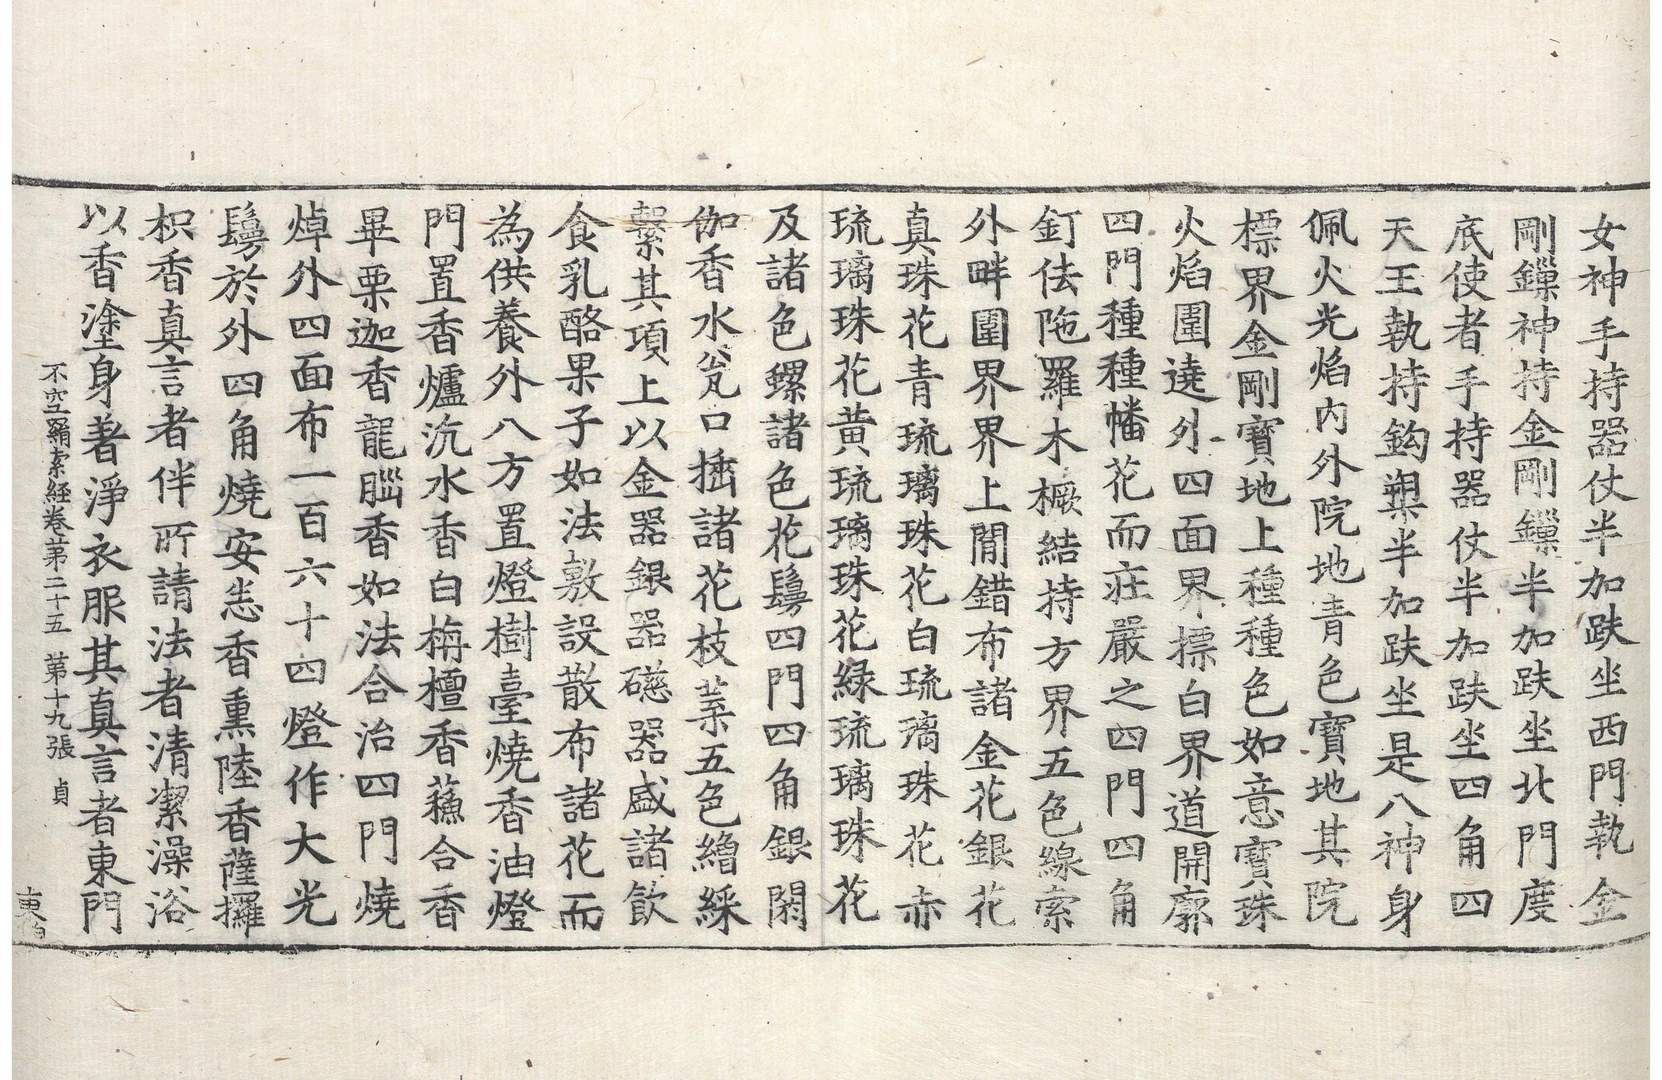 女神手持器仗半加趺坐西門執金
剛鏁神持金剛鏁半加趺坐北門度
底使者手持器仗半加趺坐四角四
天王執持鈎槊半加趺坐是八神身
佩火光焰内外院地青色寶地其院
標界金剛寶地上種種色如意寶珠
火焰圍遶外四面界摽白界道開廓
四門種種幡花而莊嚴之四門四角
釘佉陁羅木橛結持方界五色線索
外畔圍界界上閒錯布諸金花銀花
真珠花青琉璃珠花白琉璃珠花赤
琉璃珠花黄琉璃珠花緑琉璃珠花
及諸色螺諸色花鬘四門四角銀閼
伽香水瓮口揷諸花枝葉五色繒綵
繫其項上以金器銀器礠器盛諸飲
食乳酪果子如法敷設散布諸花而
為供養外八方置燈樹臺燒香油燈
門置香爐沉水香白栴檀香蘓合香
畢栗迦香龍腦香如法合治四門燒
焯外四面布一百六十四燈作大光
鬘於外四角燒安悉香熏陸香薩攞
枳香真言者伴所請法者清潔澡浴
以香塗身著淨衣服其真言者東門
不空羂索経卷第二十五 第十九張 貞